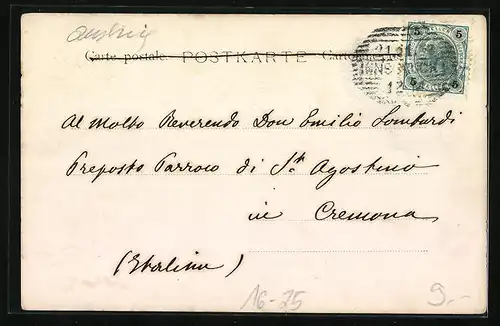 Austria
Carte postale. POSTKARTE
5 5
INNS
12
5 5
Al Molto Reverendo Don Emilio Lombardi
Preposto Parroco di St. Agostino
in Cremona
(Italien)
16-25
9.-